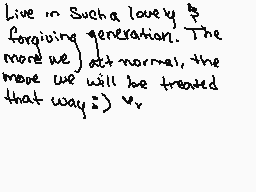 Live in such a lovely &
forgiving generation. The
more we act normal, the
more we will be treated
that way :)